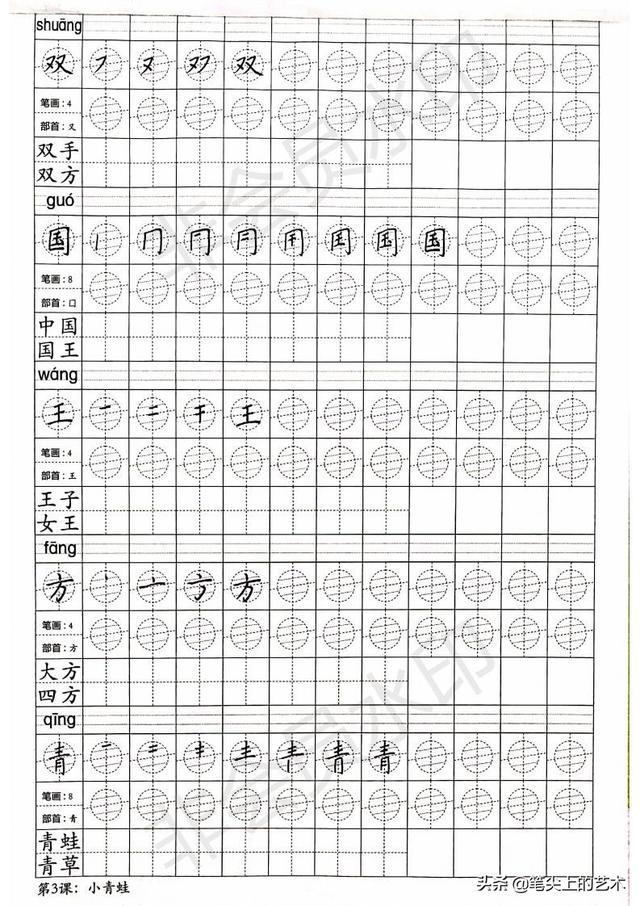 shuāng
双 丿 又 双 双
笔画：4
部首：又
双手
双方
guó
国 丨 冂 冂 冃 用 囯 国 国
笔画：8
部首：口
中国
国王
wáng
王 一 二 干 王
笔画：4
部首：王
王子
女王
fāng
方 丶 亠 方 方
笔画：4
部首：方
大方
四方
qīng
青 一 二 キ 龶 青 青 青
笔画：8
部首：青
青蛙
青草
第3课：小青蛙
非会员水印
非会员水印
头条 @笔尖上的艺术